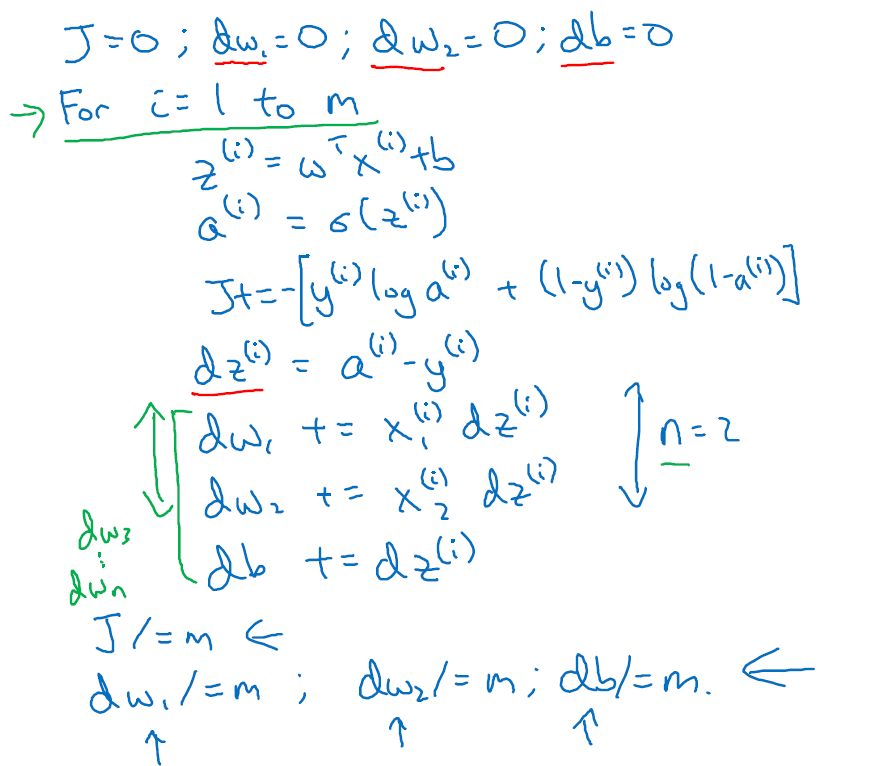 J=0 ; dw₁=0 ; dw₂=0 ; db=0
→ For i=1 to m
z⁽ⁱ⁾ = wᵀx⁽ⁱ⁾+b
a⁽ⁱ⁾ = σ(z⁽ⁱ⁾)
J+=-[y⁽ⁱ⁾ log a⁽ⁱ⁾ + (1-y⁽ⁱ⁾) log(1-a⁽ⁱ⁾)]
dz⁽ⁱ⁾ = a⁽ⁱ⁾-y⁽ⁱ⁾
dw₁ += x₁⁽ⁱ⁾ dz⁽ⁱ⁾
n=2
dw₂ += x₂⁽ⁱ⁾ dz⁽ⁱ⁾
dw₃
⋮
dwₙ
db += dz⁽ⁱ⁾
J/=m ←
dw₁/=m ; dw₂/=m ; db/=m. ←